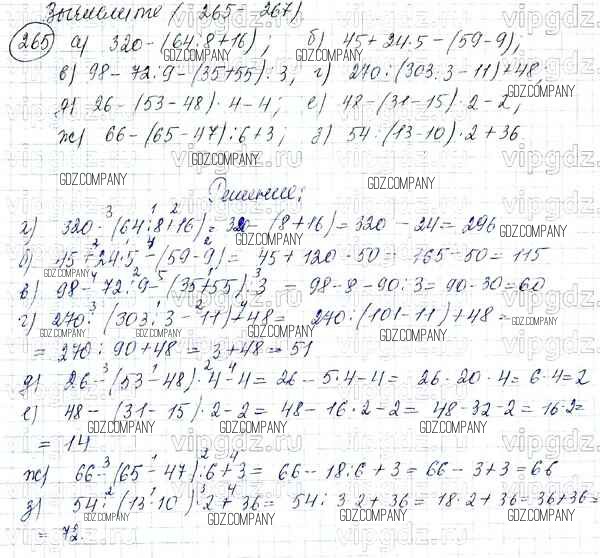 Вычислите (265-267)
265 а) 320-(64:8+16); б) 45+24·5-(59-9);
в) 98-72:9-(35+55):3; г) 270:(303:3-11)+48;
д) 26-(53-48)·4-4; е) 48-(31-15)·2-2;
ж) 66-(65-47):6+3; з) 54:(13-10)·2+36
Решение:
а) 320-(64:8+16)=320-(8+16)=320-24=296
б) 45+24·5-(59-9)=45+120-50=165-50=115
в) 98-72:9-(35+55):3=98-8-90:3=90-30=60
г) 270:(303:3-11)+48=270:(101-11)+48=
=270:90+48=3+48=51
д) 26-(53-48)·4-4=26-5·4-4=26-20-4=6-4=2
е) 48-(31-15)·2-2=48-16·2-2=48-32-2=16-2=
=14
ж) 66-(65-47):6+3=66-18:6+3=66-3+3=66
з) 54:(13-10)·2+36=54:3·2+36=18·2+36=36+36=
=72.